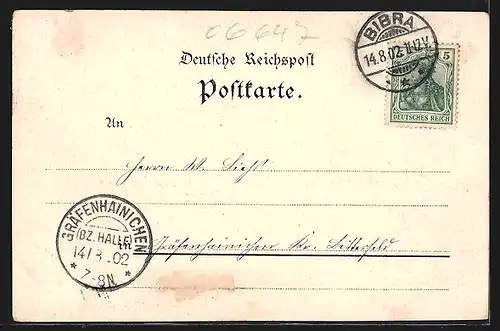 06647
BIBRA
14.8.02.11-12V.
Deutsche Reichspost
Postkarte.
5
DEUTSCHES REICH
An
Herrn W.
GRÄFENHAINICHEN
(BZ. HALLE)
14/8.02
7-8N
in
Gräfenhainichen Kr. Bitterfeld